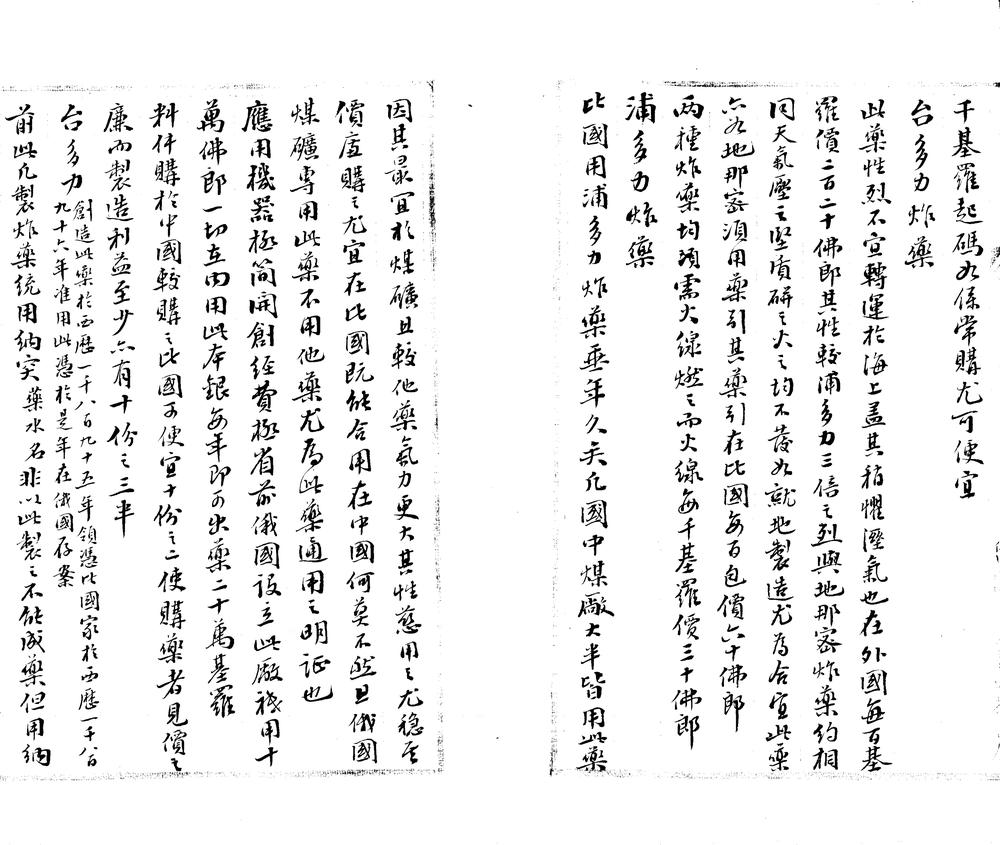 千基羅起碼如係常購尤可便宜
台多力炸藥
此藥性烈不宜轉運於海上蓋其稍懼溼氣也在外國每百基
羅價二百二十佛郎其性較浦多力三倍之烈與地那密炸藥約相
同天氣壓之堅質研之火之均不發如就地製造尤為合宜此藥
亦如地那密須用藥引其藥引在比國每百包價六十佛郎
兩種炸藥均須需火線燃之而火線每千基羅價三十佛郎
浦多力炸藥
比國用浦多力炸藥垂年久矣凡國中煤廠大半皆用此藥
因其最宜於煤礦且較他藥氣力更大其性慈用之尤穩至
價值購之尤宜在比國既能合用在中國何莫不然且俄國
煤礦專用此藥不用他藥尤為此藥通用之明証也
應用機器極簡開創經費極省前俄國設立此廠祗用十
萬佛郎一切在內用此本銀每年即可出藥二十萬基羅
料件購於中國較購之比國可便宜十份之二使購藥者見價之
廉而製造利益至少亦有十份之三半
台多力創造此藥於西歷一千八百九十五年領憑比國家於西歷一千八百
九十六年准用此憑於是年在俄國存案
前此凡製炸藥統用納突藥水名非以此製之不能成藥但用納